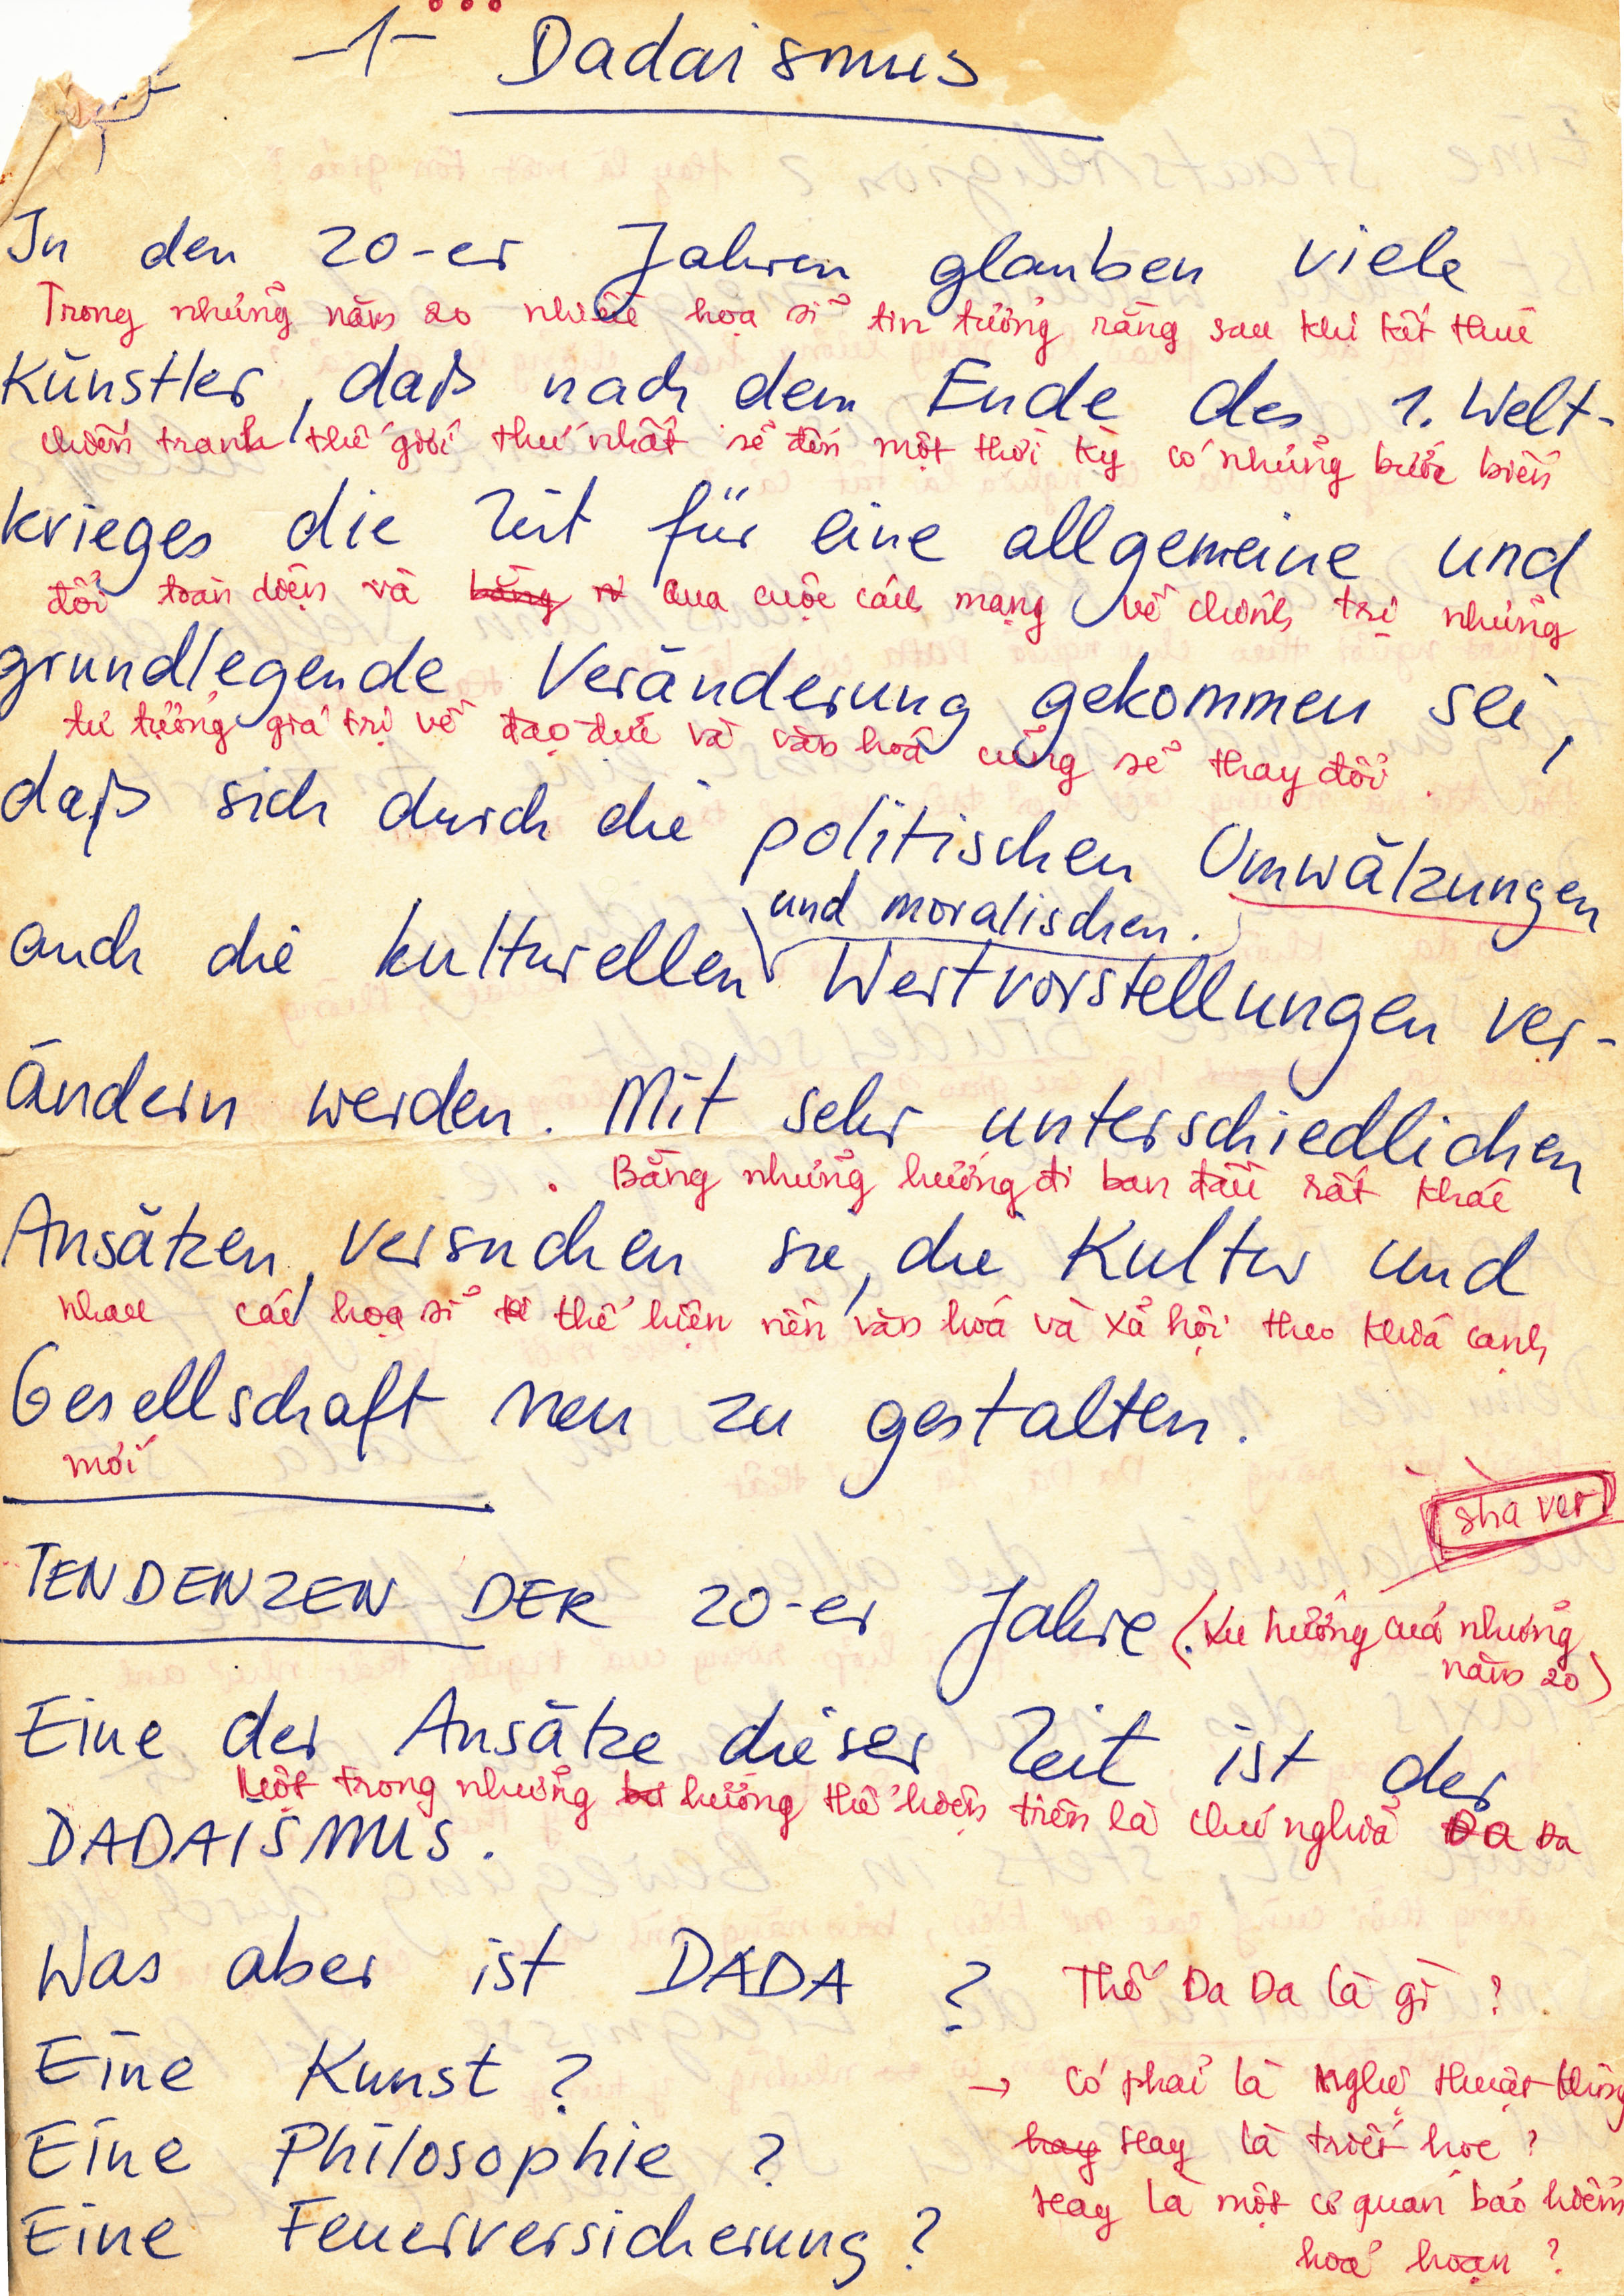 -1- Dadaismus
In den 20-er Jahren glauben viele
Trong những năm 20 nhiều họa sĩ tin tưởng rằng sau khi kết thúc
Künstler, daß nach dem Ende des 1. Welt-
chiến tranh thế giới thứ nhất sẽ đến một thời kỳ có những bước biến
krieges die Zeit für eine allgemeine und
đổi toàn diện và bằng qua cuộc cách mạng về chính trị những
grundlegende Veränderung gekommen sei,
tư tưởng giá trị về đạo đức và văn hoá cũng sẽ thay đổi.
daß sich durch die politischen Umwälzungen
und moralischen
auch die kulturellen Wertvorstellungen ver-
ändern werden. Mit sehr unterschiedlichen
. Bằng những hướng đi ban đầu rất khác
Ansätzen, versuchen sie, die Kultur und
nhau các họa sĩ thể hiện nền văn hoá và xã hội theo khiá cạnh
Gesellschaft neu zu gestalten.
mới
sha ver
TENDENZEN DER 20-er Jahre (Xu hướng cuả những
năm 20)
Eine der Ansätze dieser Zeit ist der
Một trong những hướng thể hiện trên là chủ nghiã Da Da
DADAISMUS.
Was aber ist DADA ? Thế Da Da là gì ?
Eine Kunst ? → có phải là nghệ thuật không
Eine Philosophie ? hay Hay là triết học ?
Eine Feuerversicherung ? Hay là một cơ quan bảo hiểm
hoả hoạn ?